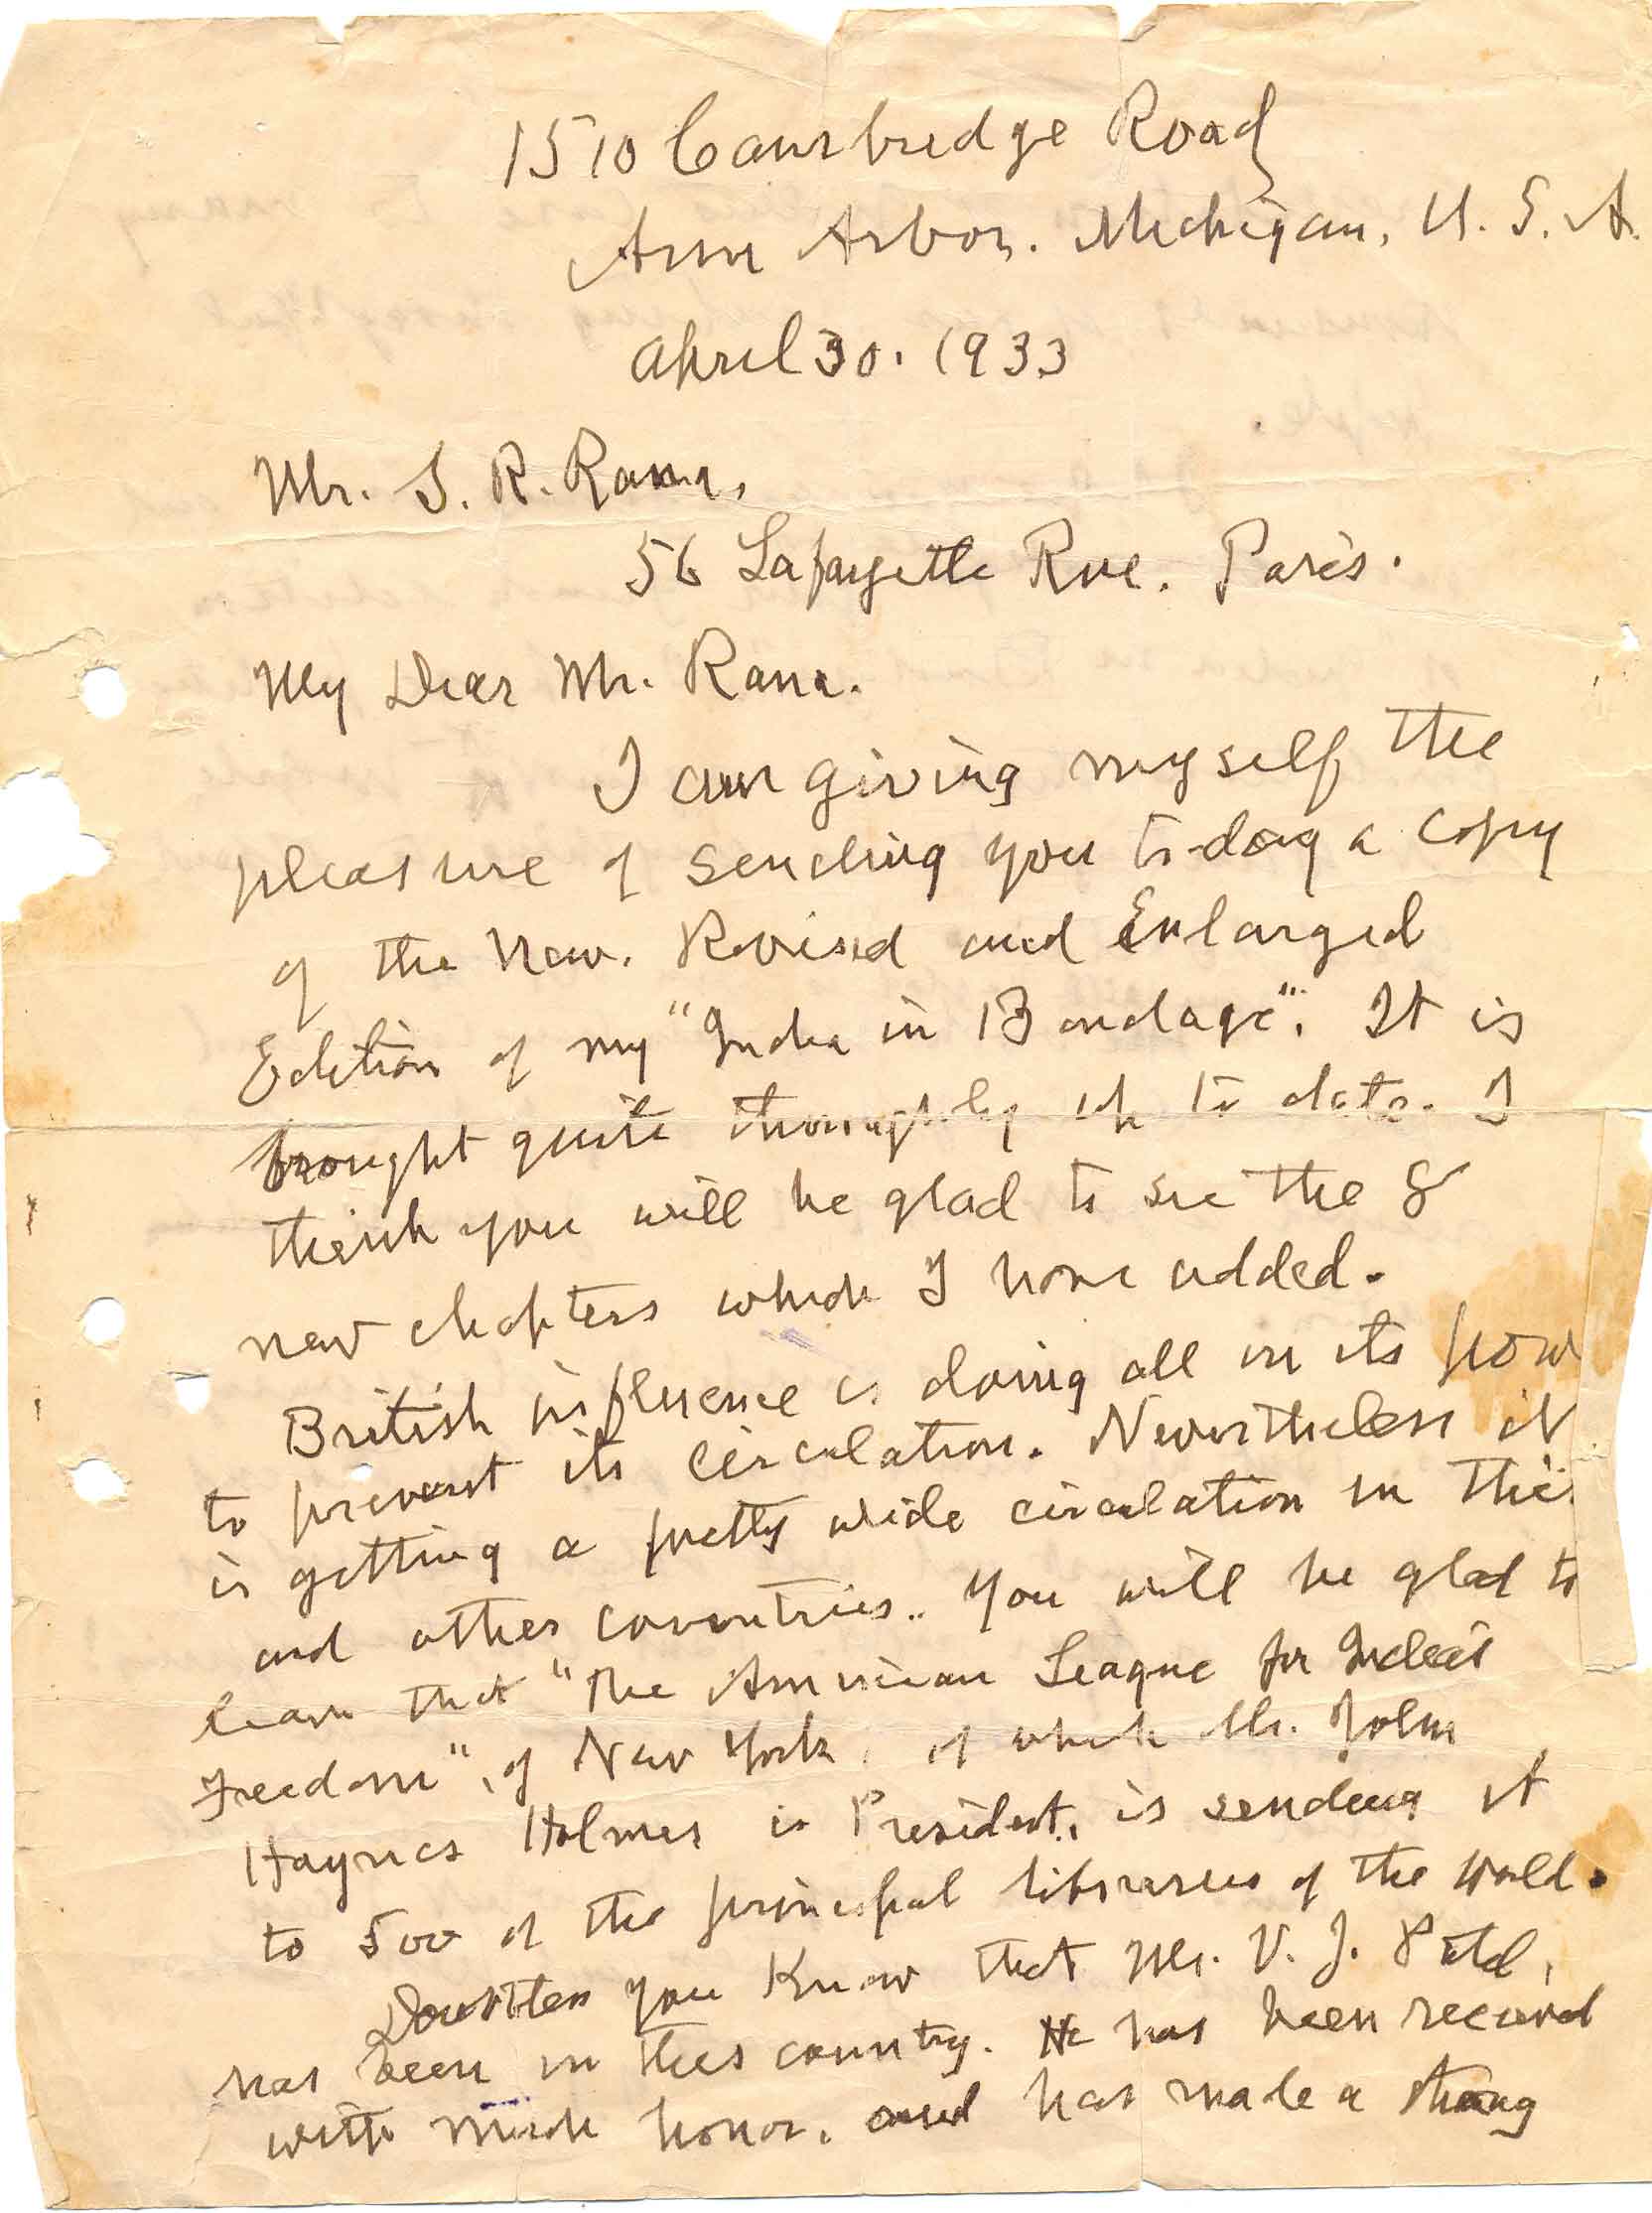 1510 Cambridge Road
Ann Arbor. Michigan, U. S. A.
April 30. 1933
Mr. S. R. Rana,
56 Lafayette Rue. Paris.
My Dear Mr. Rana.
I am giving myself the
pleasure of sending you to-day a copy
of the New. Revised and Enlarged
Edition of my "India in Bondage". It is
brought quite thoroughly up to date. I
think you will be glad to see the 8
new chapters which I have added.
British influence is doing all in its pow
to prevent its circulation. Nevertheless it
is getting a pretty wide circulation in this
and other countries. You will be glad to
learn that "The American League for India's
Freedom", of New York, of which Mr. John
Haynes Holmes is President, is sending it
to 500 of the principal libraries of the world.
Doubtless you know that Mr. V. J. Patel,
has been in this country. He has been received
with much honor, and has made a strong